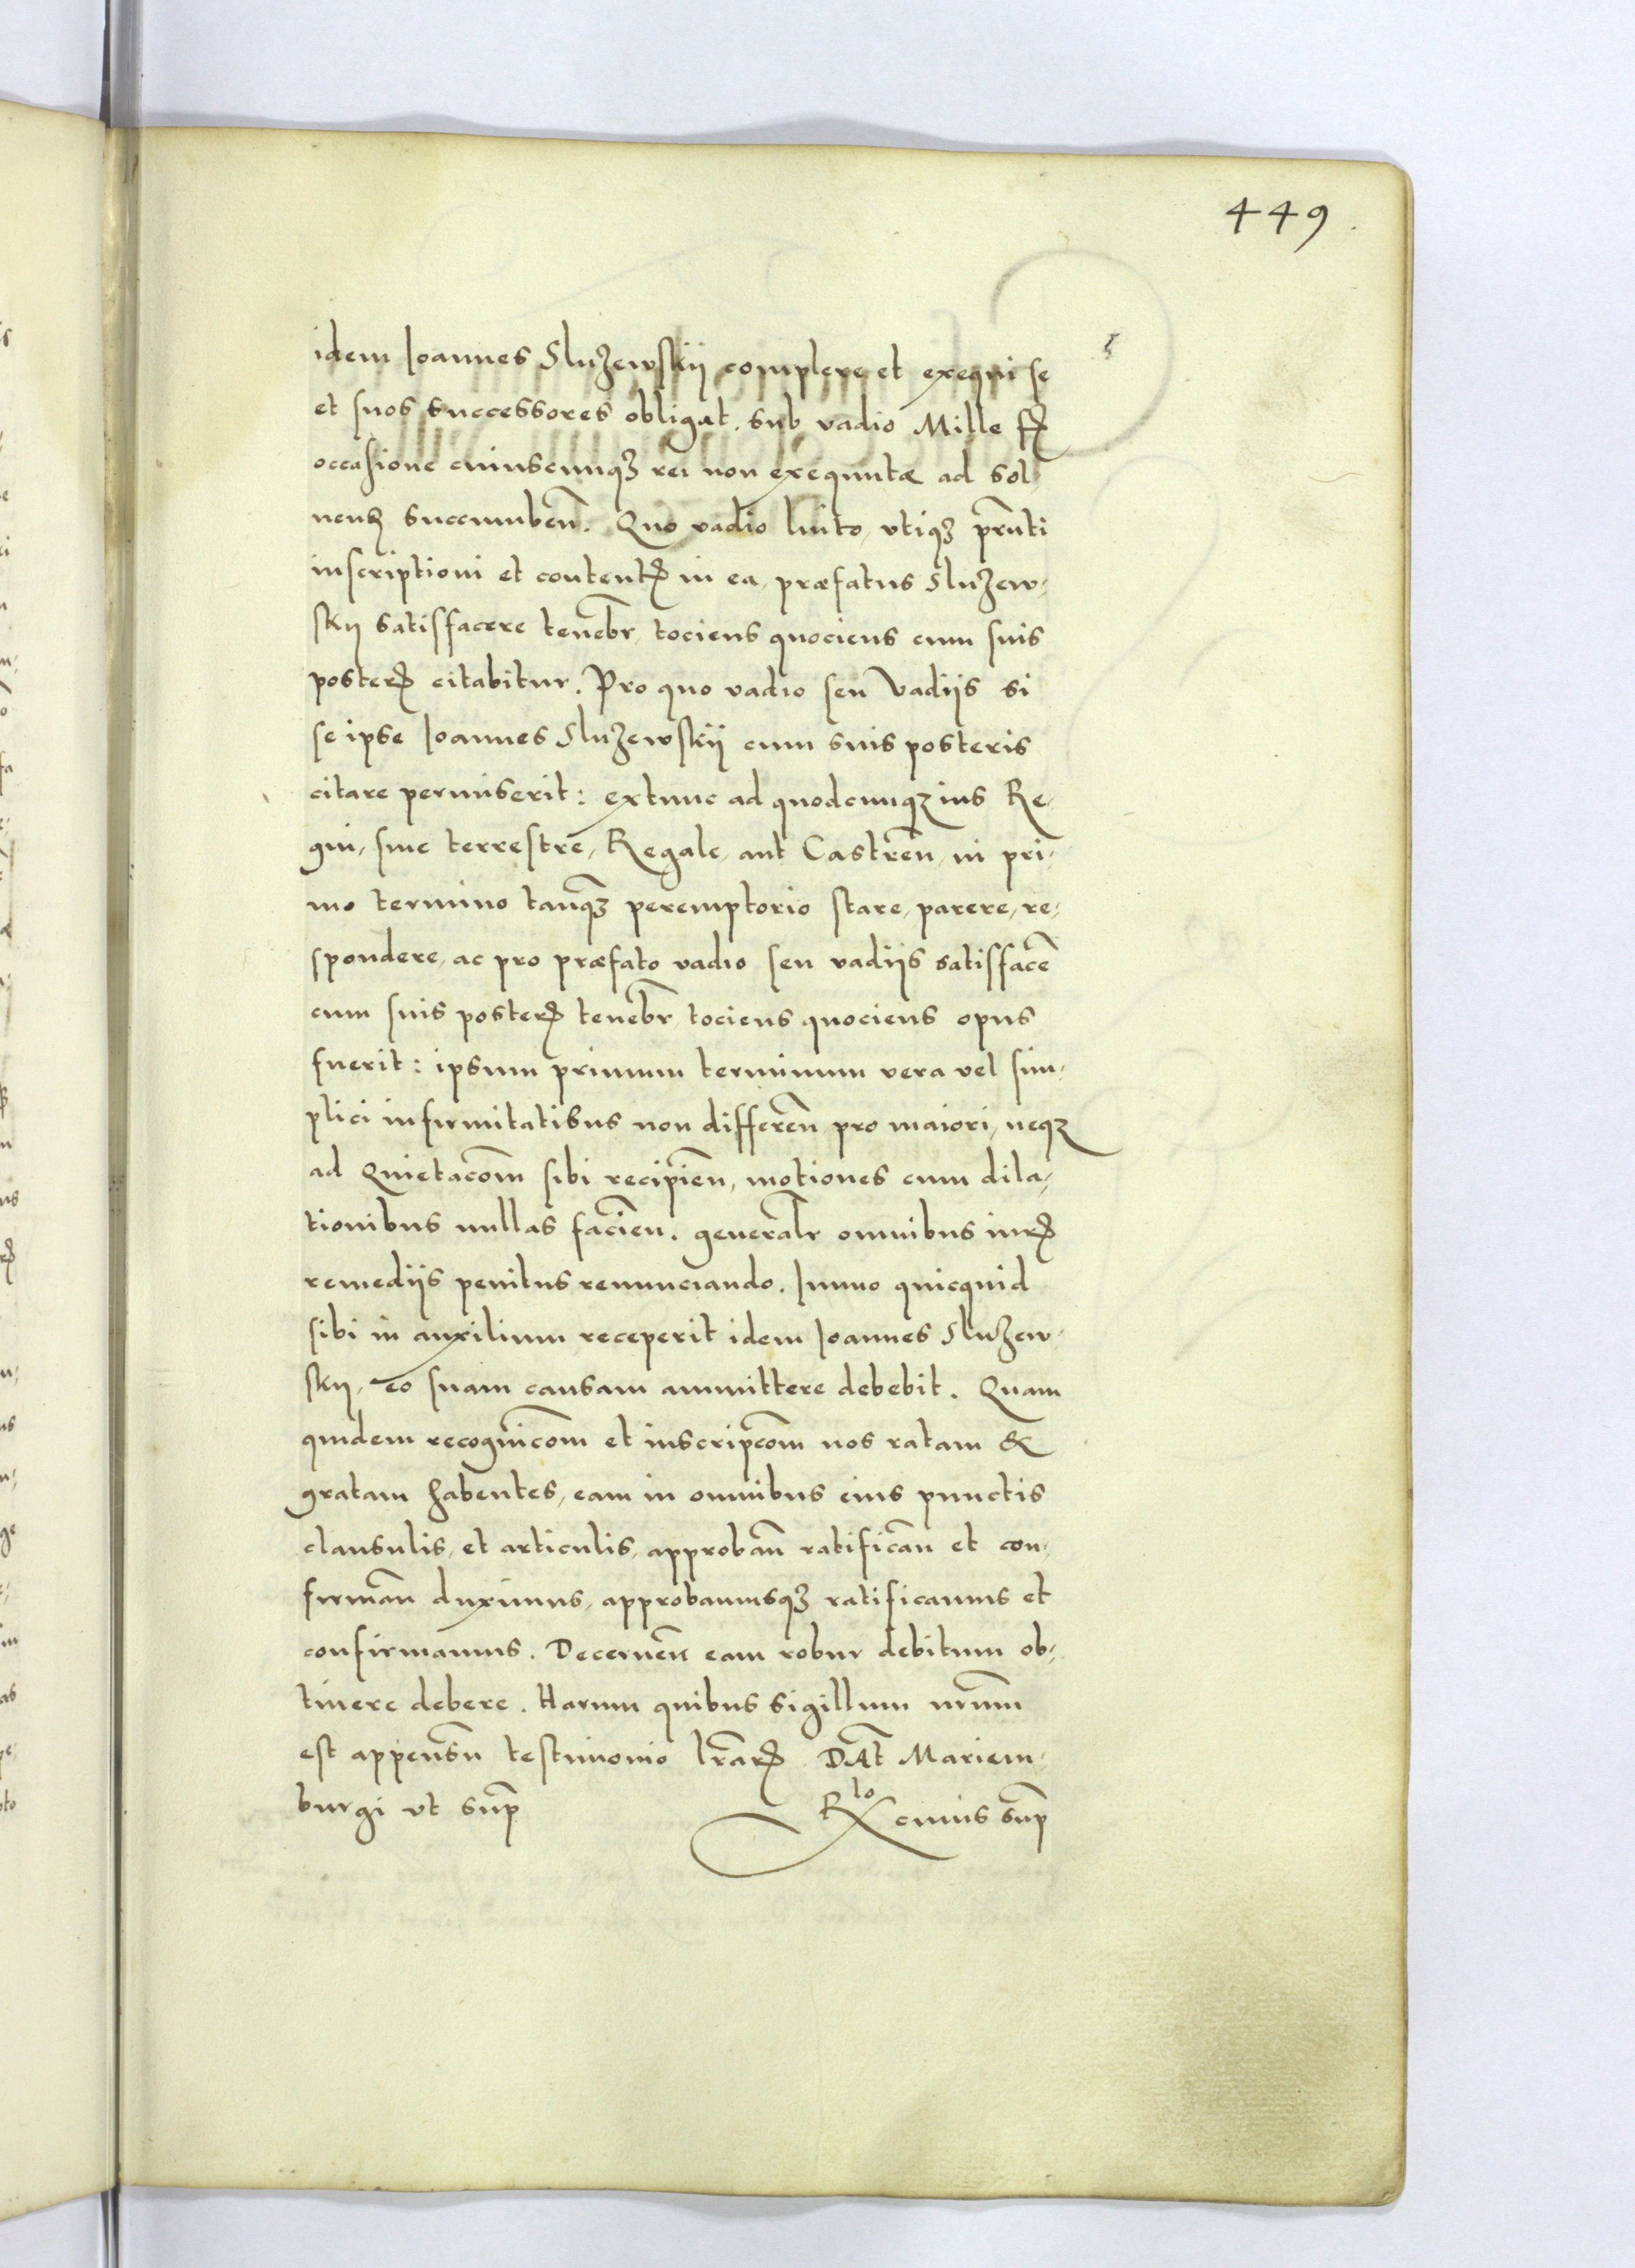 449.
idem Joannes Sluzewskij complere et exequi se
et suos successores obligat. sub vadio Mille
occasione cuiuscunqз rei non exequutæ ad sol
uend succumbeñ. Quo vadio luito, vtiqз prn̄ti
inscriptioni et content in ea, præfatus Sluzew-
skij satisfacere teneb̄r, tociens quociens cum suis
poster citabitur. Pro quo vadio seu Vadijs si
se ipse Joannes Sluzewskij cum suis posteris
citare permiserit: extunc ad quodcunqз ius Re-
gni, siue terrestre, Regale, aut Castreñ, in pri-
mo termino tanqз peremptorio stare, parere, re-
spondere, ac pro præfato vadio seu vadijs satisfacē
cum suis poster teneb̄r, tociens quociens opus
fuerit: ipsum primum terminum vera vel sim-
plici infirmitatibus non differeñ pro maiori, neqз
ad Quietacōm sibi recipieñ, motiones cum dila-
tionibus nullas facieñ. general̄r omnibus iur
remedijs penitus renunciando. Immo quicquid
sibi in auxilium receperit idem Joannes Sluzew-
skij, eo suam causam ammittere debebit. Quam
quidem recognicōm et inscripcōm nos ratam &
gratam habentes, eam in omnibus eius punctis
clausulis, et articulis, approbañ ratificañ et con-
firmañ duximus, approbamusqз ratificamus et
confirmamus. Decerneñ eam robur debitum ob-
tinere debere. Harum quibus sigillum nrūm
est appensū testimonio lrār Dat̄ Mariem-
burgi vt sup̄
R<sup>lo</sup> cuius sup̄